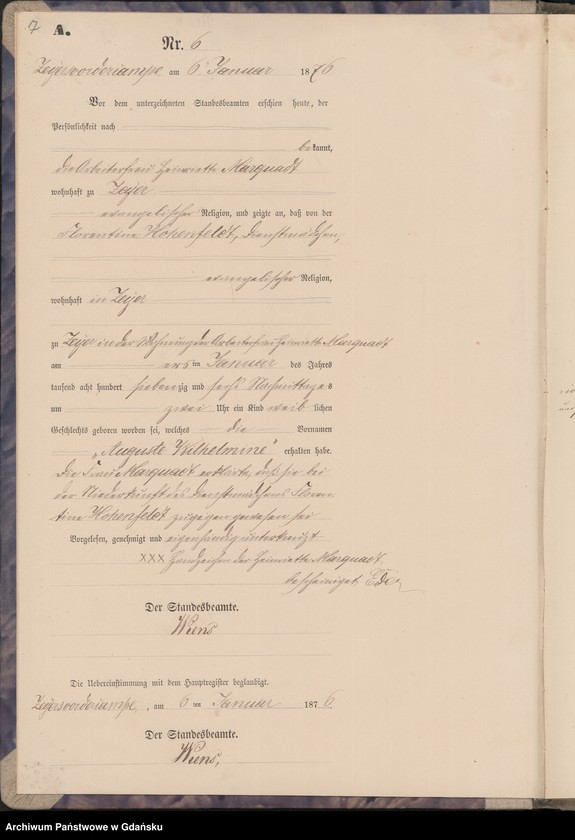 7
A.
Nr. 6
Zeyersvorderkampe am 6 Januar 1876
Vor dem unterzeichneten Standesbeamten erschien heute, der
Persönlichkeit nach
bekannt,
die Arbeiterfrau Henriette Marquadt
wohnhaft zu Zeyer
evangelischer Religion, und zeigte an, daß von der
Florentine Hohenfeldt, Dienstmädchen,
evangelischer Religion,
wohnhaft in Zeyer
zu Zeyer in der Wohnung der Arbeiterfrau Henriette Marquadt
am ersten Januar des Jahres
tausend acht hundert siebenzig und sechs Nachmittags
um zwei Uhr ein Kind weiblichen
Geschlechts geboren worden sei, welches die Vornamen
„Auguste Wilhelmine" erhalten habe.
Die Frau Marquadt erklärte, daß sie bei
der Niederkunft des Dienstmädchens Floren
tine Hohenfeldt zugegen gewesen sei
Vorgelesen, genehmigt und eigenhändig unterkreuzt
XXX Handzeichen der Henriette Marquadt
bescheinigt
Der Standesbeamte.
Wiens
Die Uebereinstimmung mit dem Hauptregister beglaubigt.
Zeyersvorderkampe, am 6ten Januar 1876.
Der Standesbeamte.
Wiens,
Archiwum Państwowe w Gdańsku